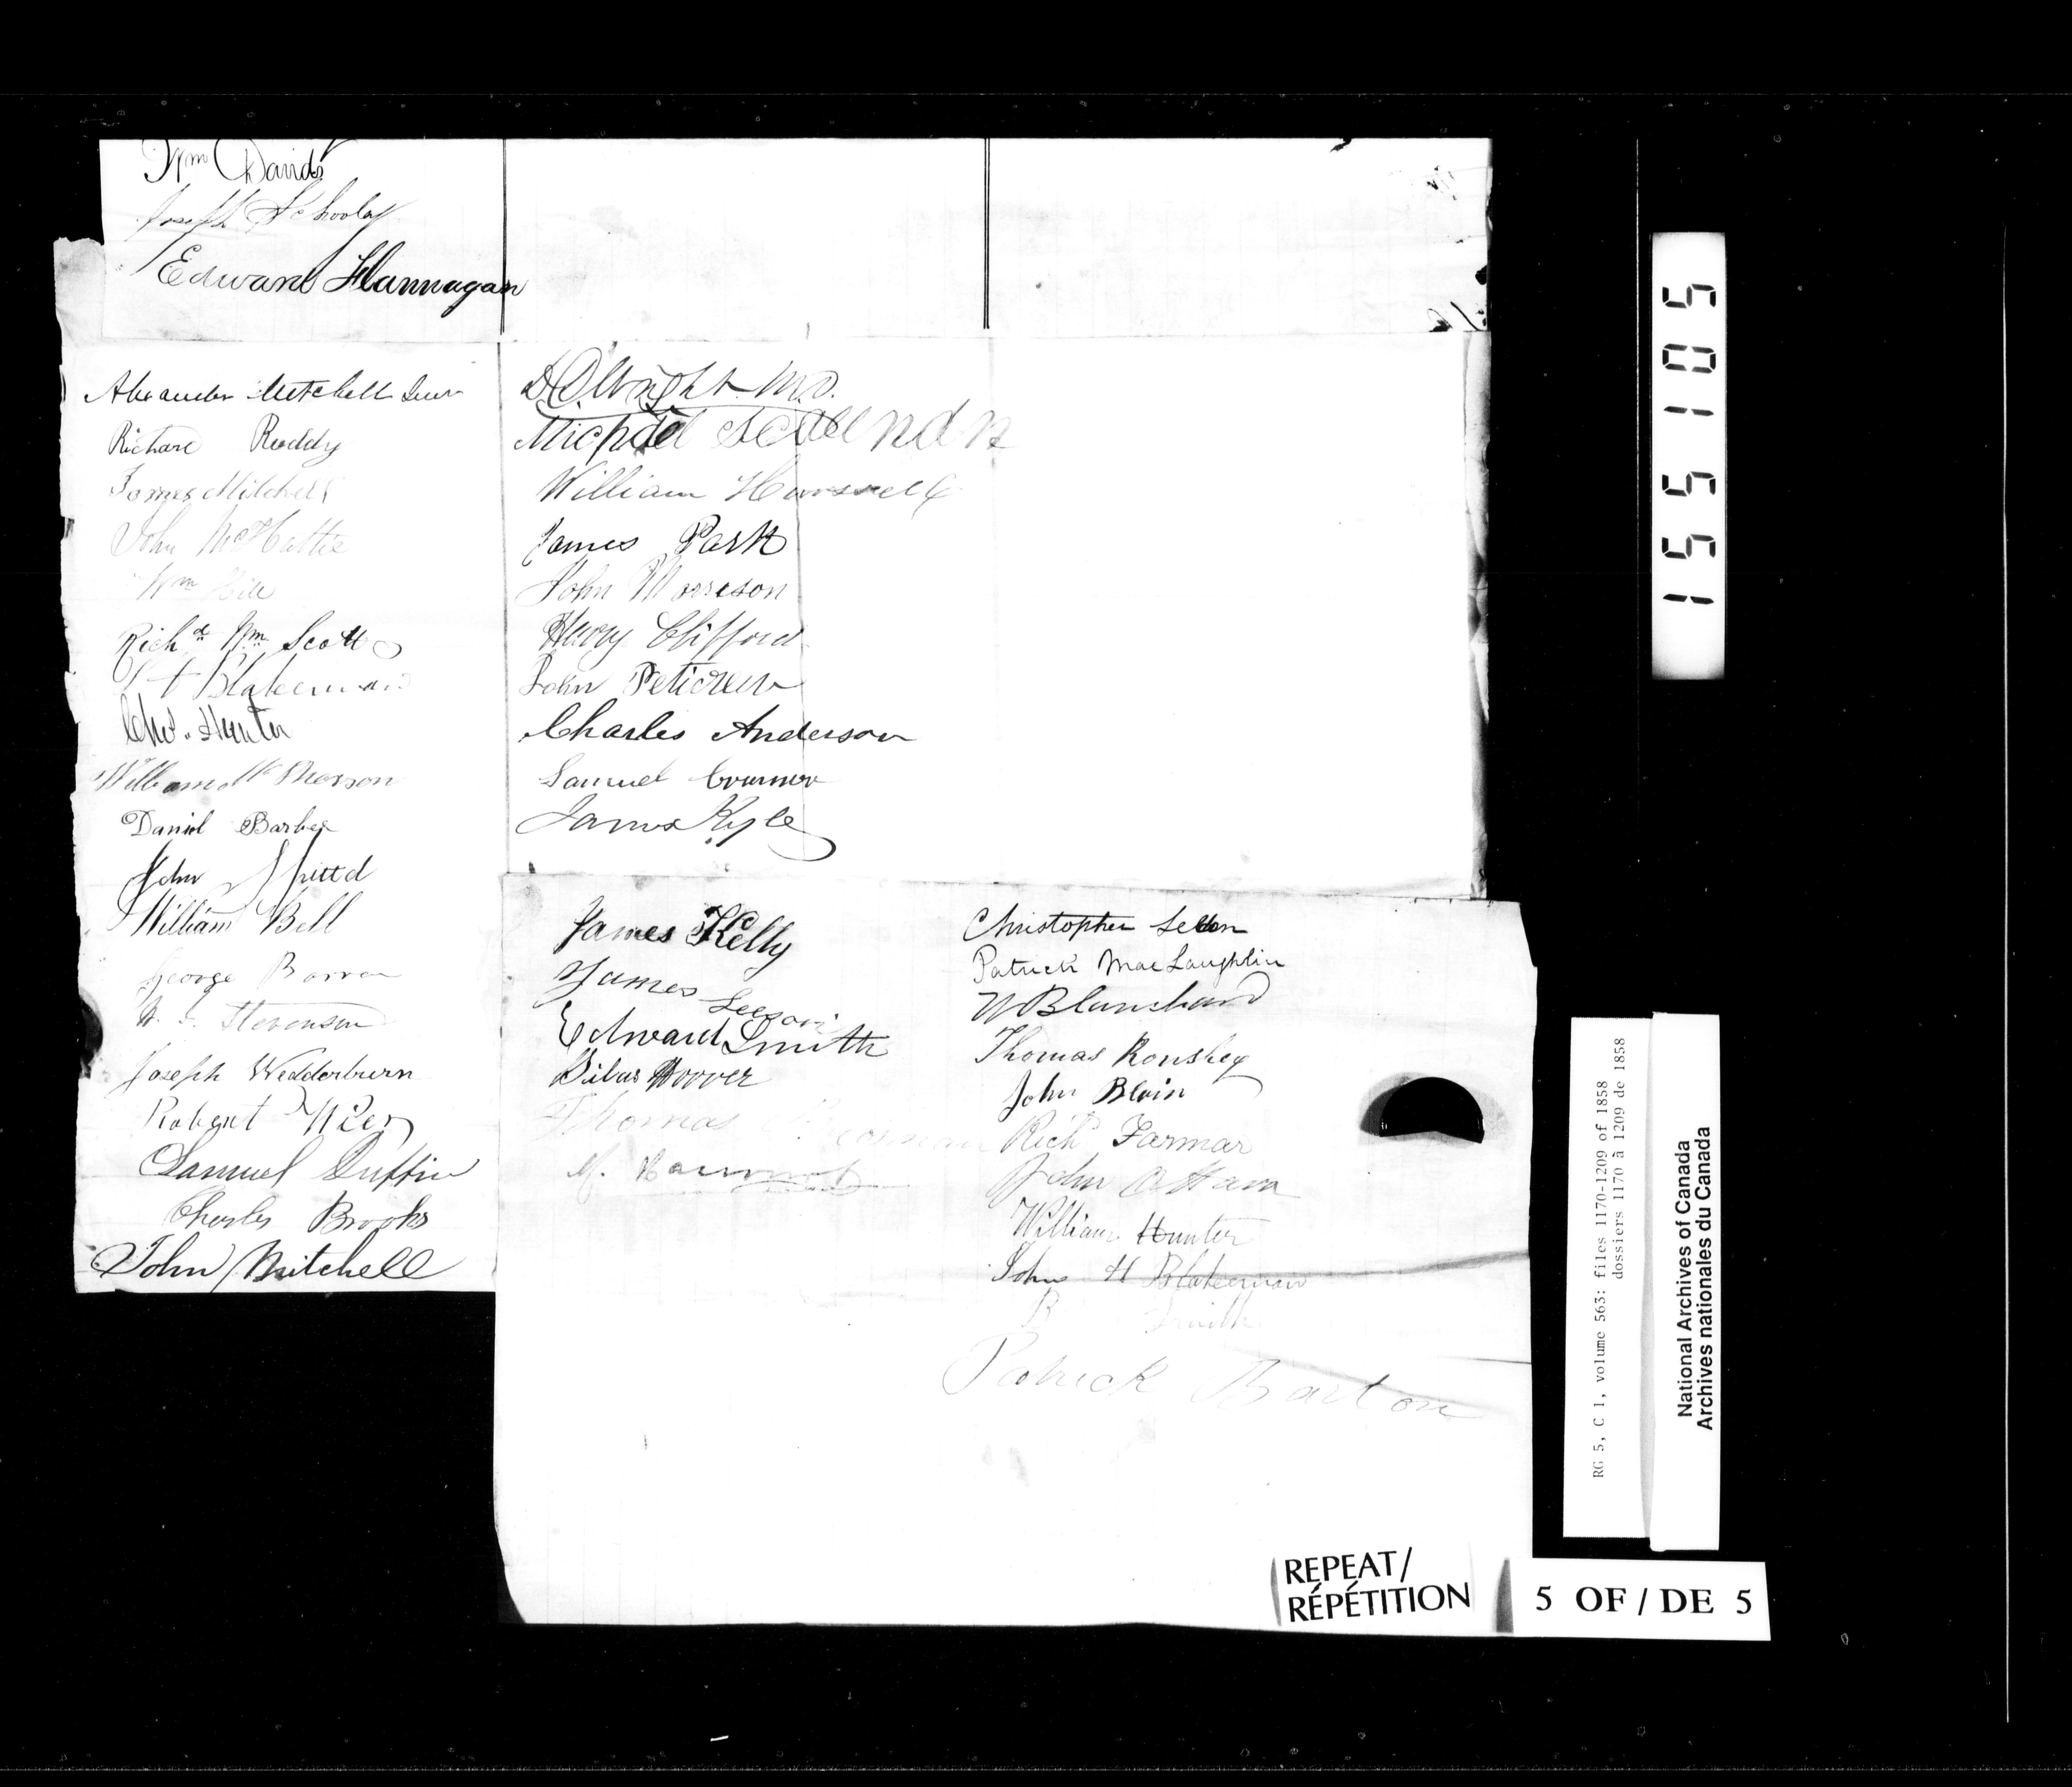 Wm Davids
Joseph Schooley
Edward Flannagan
Alexander Mitchell Junr
Richard Ruddy
James Mitchell
John McHattie
Wm Hill
Richd Wm Scott
Blakeman
Chs. Hunter
William
Daniel Barber
John
William Bell
George Barron
Stevenson
Joseph Wedderburn
Robert
Samuel Duffin
Charles Brooks
John Mitchell
M.D.
Michael
William
James Park
John Morrison
Henry Clifford
John Peticrew
Charles Anderson
Samuel
James Kyle
James Kelly
James Leeson
Edward Smith
Silas Hoover
Thomas
M.
Christopher
Patrick MacLaughlin
W Blanchard
Thomas Ronshey
John Blain
Richd Farmar
John O Hara
William Hunter
John H Blakeman
B Smith
Patrick Barton
155105
RG 5, C 1, volume 563: files 1170-1209 of 1858
dossiers 1170 à 1209 de 1858
National Archives of Canada
Archives nationales du Canada
REPEAT/
RÉPÉTITION
5 OF / DE 5